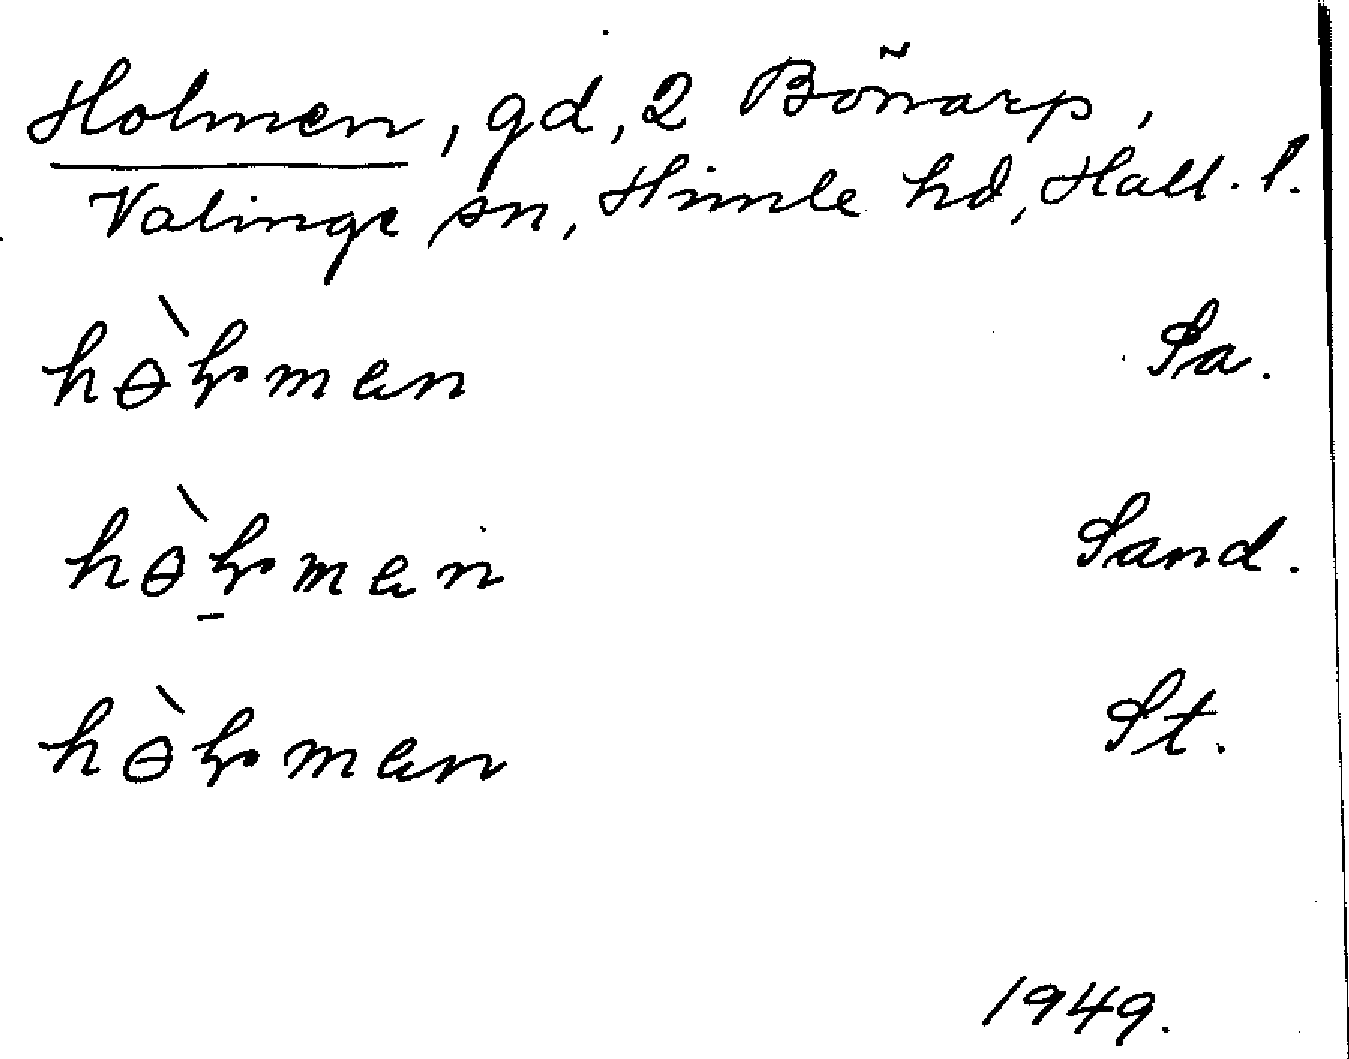 Holmen, gd, 2 Bönarp,
Valinge sn, Himle hd, Hall. l.
hɵ̀ɫman Sa.
hɵ̀ɫ̠man Sand.
hɵ̀ɫman St.
1949.